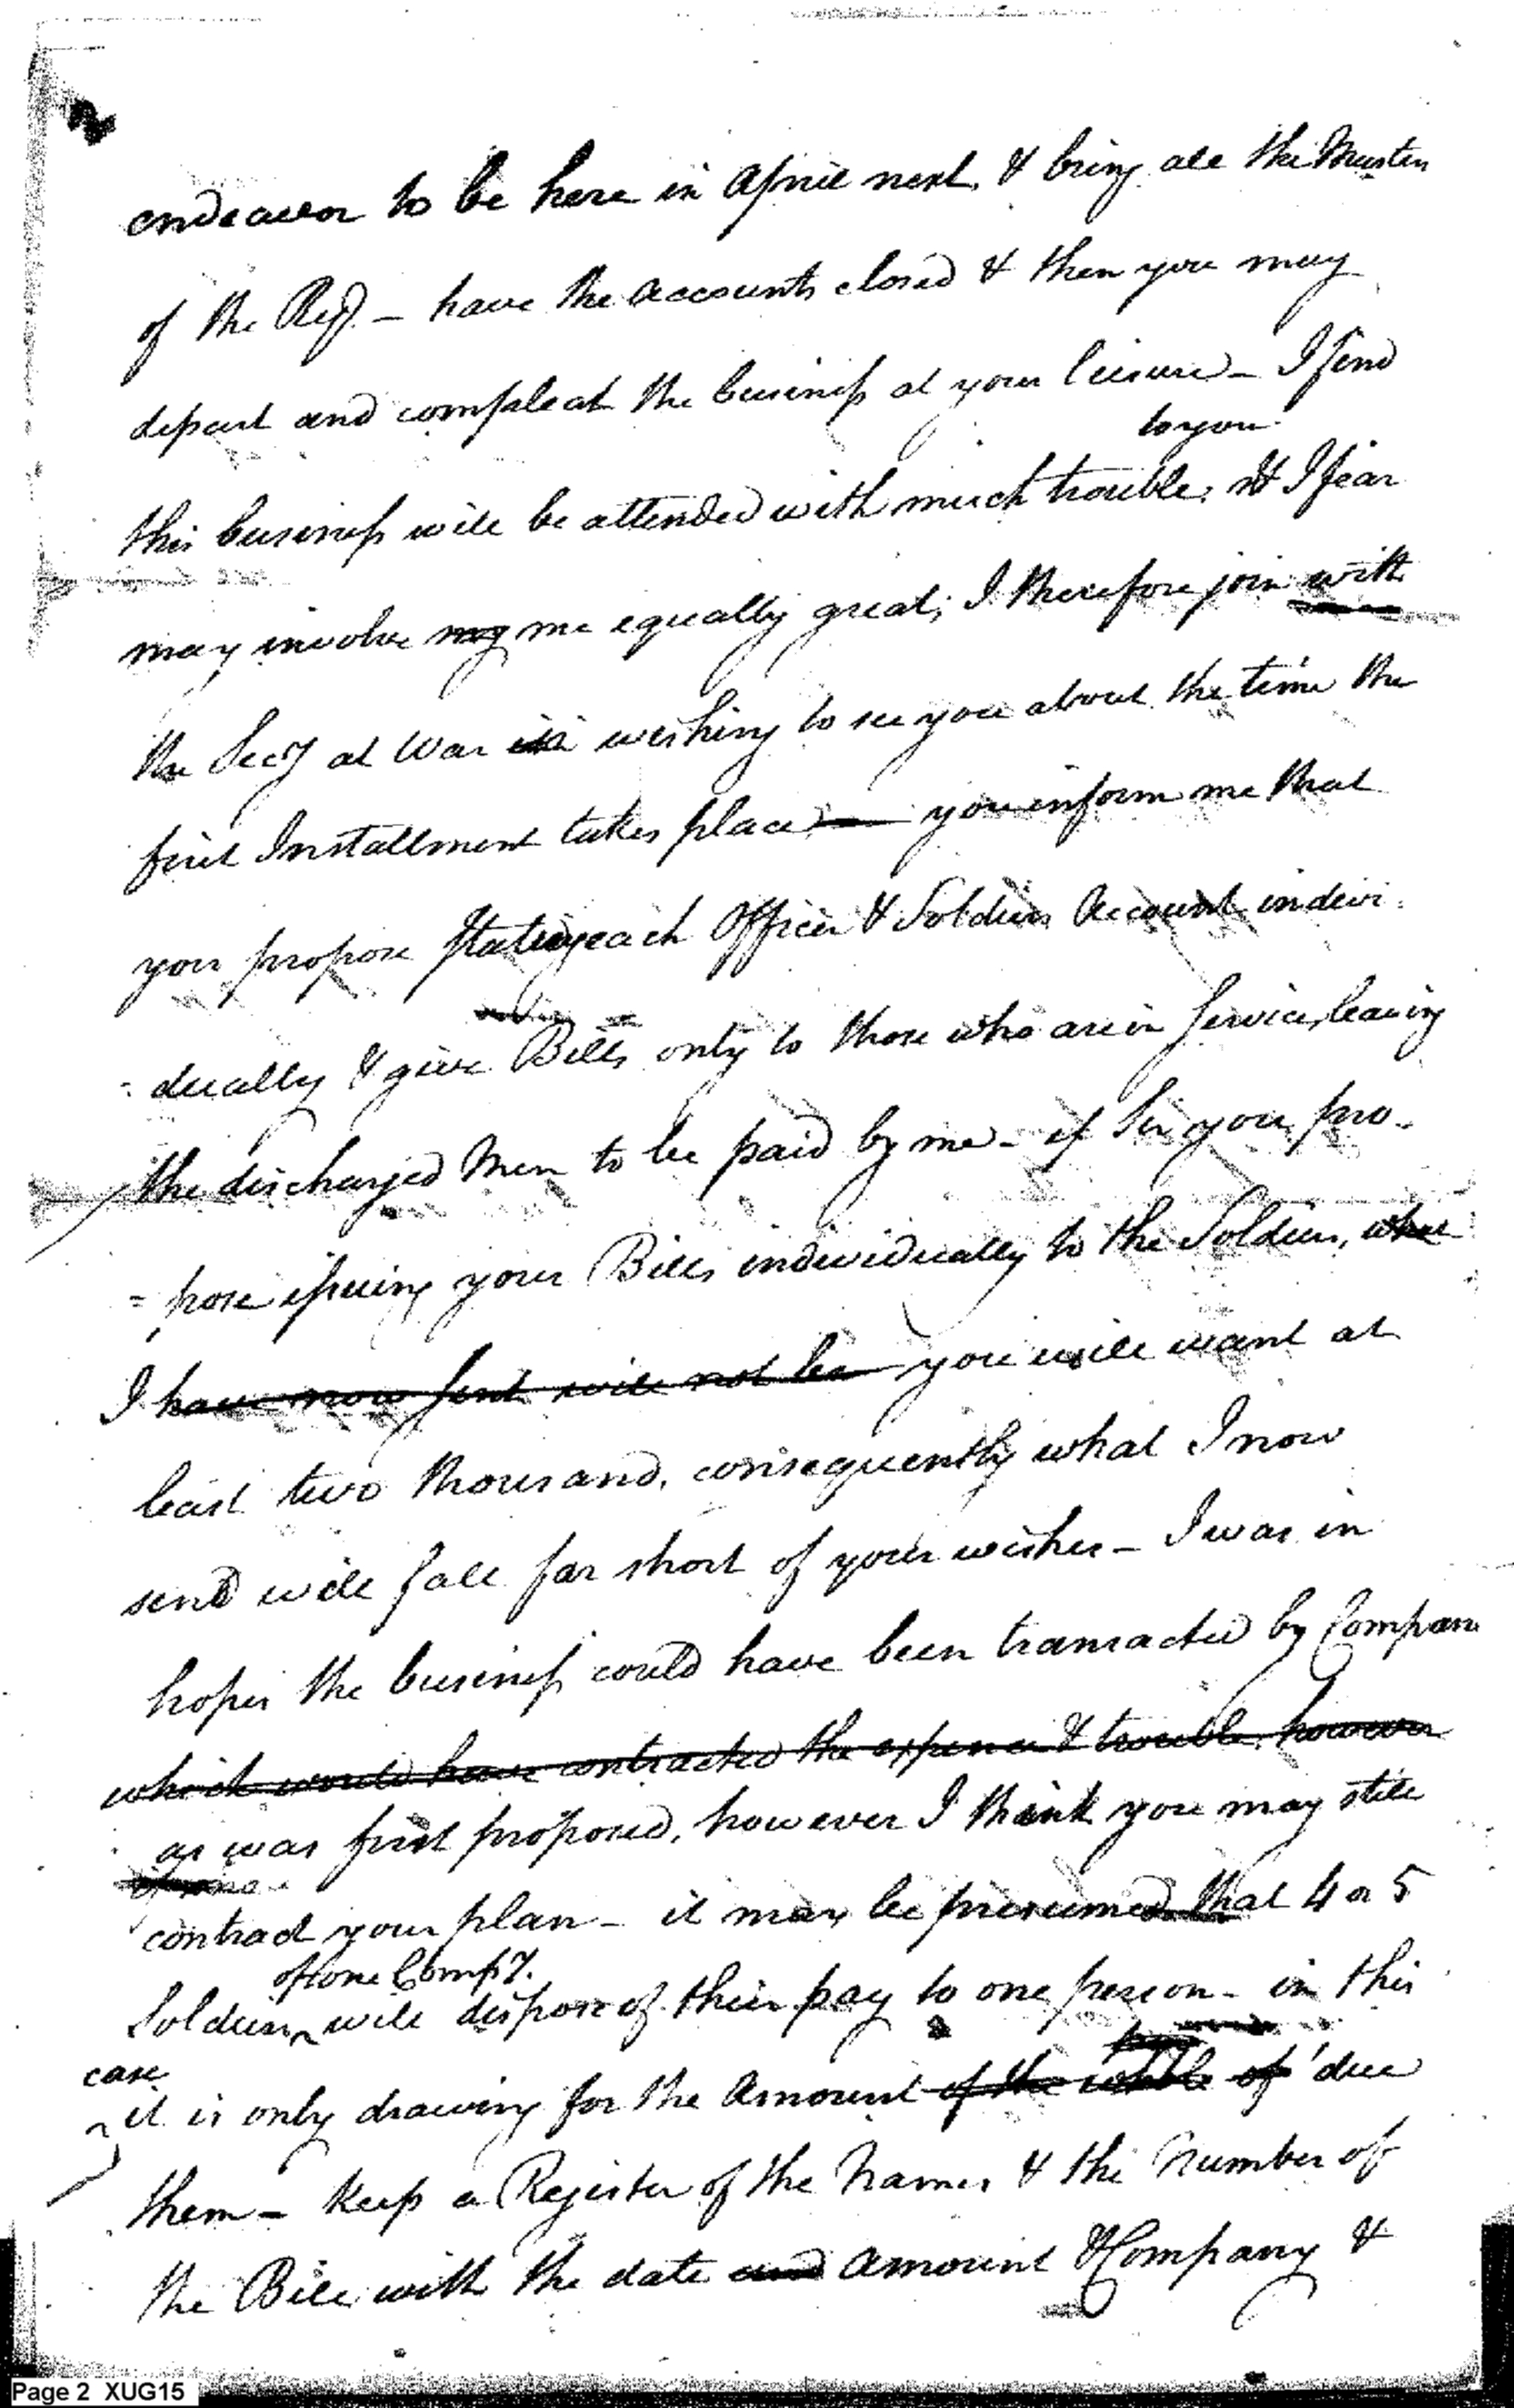 endeavor to be here in April next, & bring all the Musters
of the Regt. – have the Accounts closed & then you may
depart and compleat the business at your leisure – I find
to you
this business will be attended with much trouble, & I fear
may involve my me equally great; I therefore join with
the Secy at War in wishing to see you about the time the
first Installment takes place — you inform me that
you propose stating each Officer & Soldiers Account indivi-
-dually & give Bills only to those who are in Service, leaving
the discharged Men to be paid by me – if Sir you pro-
=pose issuing your Bills individually to the Soldiers, what
I have now sent will not be you will want at
least two thousand, consequently what I now
send will fall far short of your wishes – I was in
hopes the business could have been transacted by Compan
which would have contracted the expence & trouble, however
as was first proposed, however I think you may still
contract your plan – it may be presumed that 4 or 5
of one Compy.
Soldiers will dispose of their pay to one person – in this
case
it is only drawing for the Amount of the whole of due
them – keep a Register of the Names & the Number of
the Bill with the date and Amount & Company &
Page 2 XUG15